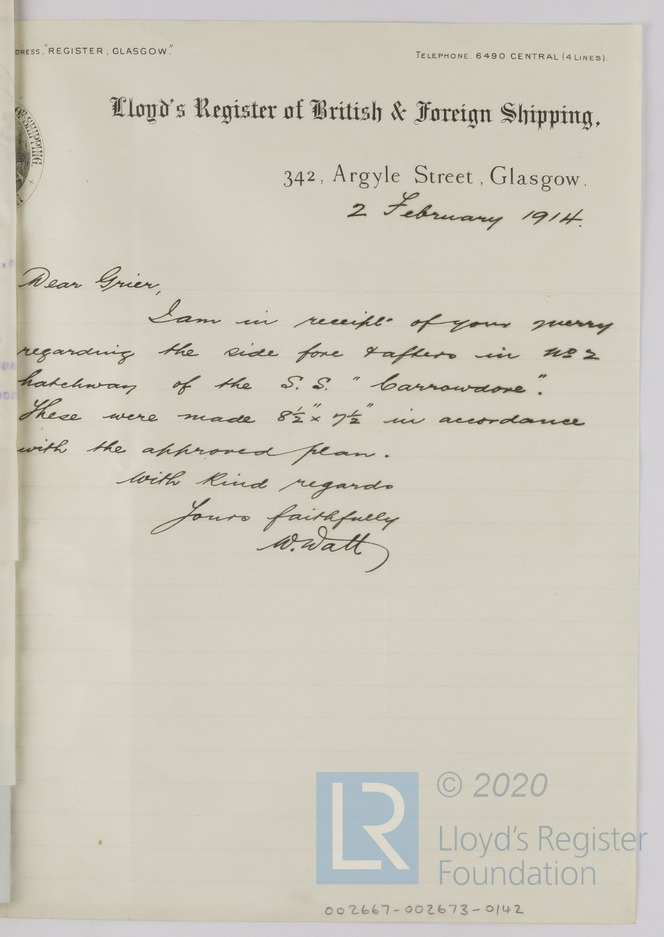 DRESS, "REGISTER, GLASGOW."
TELEPHONE. 6490 CENTRAL (4 LINES).
Lloyd's Register of British & Foreign Shipping,
342, Argyle Street, Glasgow.
2 February 1914.
Dear Grier,
I am in receipt of your querry
regarding the side fore & afters in No 2
hatchway of the S.S. "Carrowdore".
These were made 8½" x 7½" in accordance
with the approved plan.
With kind regards
Yours faithfully
W. Watt
LR
© 2020
Lloyd's Register
Foundation
002667-002673-0142